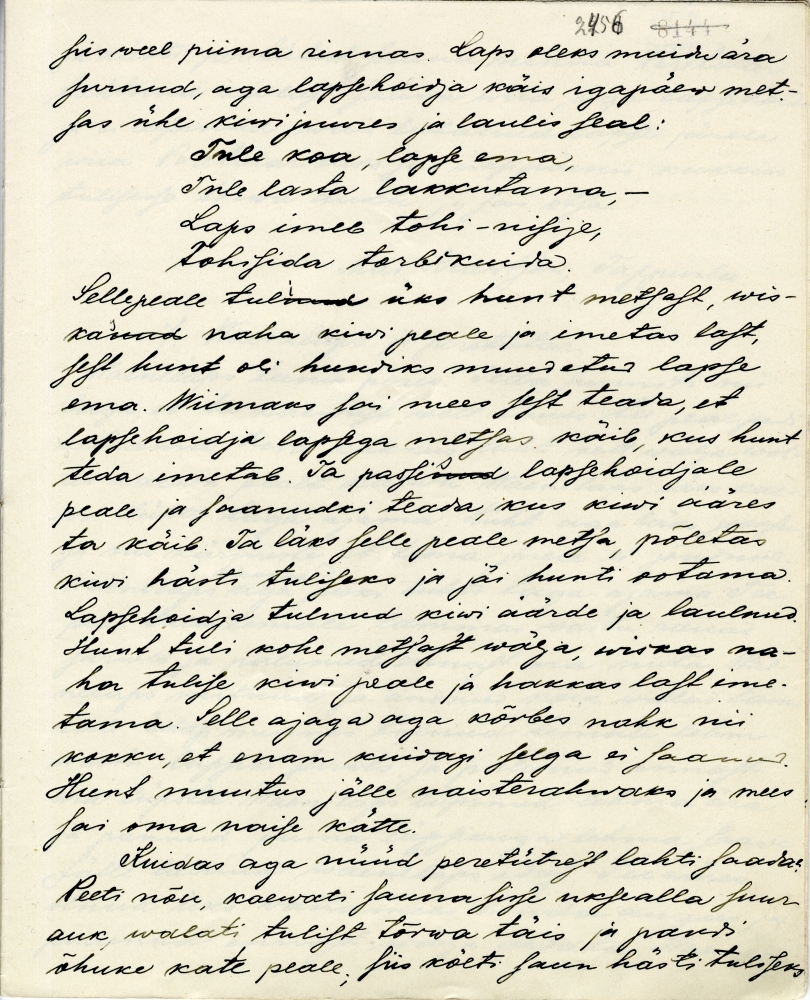 2456 8144
siis weel piima rinnas. Laps oleks muidu ära
surnud, aga lapsehoidja käis igapäew met-
sas ühe kiwi juures ja laulis seal:
Tule koa, lapse ema,
Tule lasta lakkutama, —
Laps imeb tohi-nisije,
Tohisida torbikuida.
Selle peale tuli üks hunt metsast, wis-
kas naha kiwi peale ja imetas last,
sest hunt oli hundiks muudetud lapse
ema. Wiimaks sai mees sest teada, et
lapsehoidja lapsega metsas käib, kus hunt
teda imetab. Ta passis lapsehoidjale
peale ja saanudki teada, kus kiwi ääres
ta käib. Ta läks selle peale metsa, põletas
kiwi hästi tuliseks ja jäi hunti ootama.
Lapsehoidja tulnud kiwi äärde ja laulnud.
Hunt tuli kohe metsast wälja, wiskas na-
ha tulise kiwi peale ja hakkas last ime-
tama. Selle ajaga aga kõrbes nahk nii
kokku, et enam kuidagi selga ei saanud.
Hunt muutus jälle naisterahwaks ja mees
sai oma naise kätte.
Kuidas aga nüüd peretütrest lahti saada?
Peeti nõu, kaewati sauna sisse ukse alla suur
auk, walati tulist tõrwa täis ja pandi
õhuke kate peale; siis köeti saun hästi tuliseks